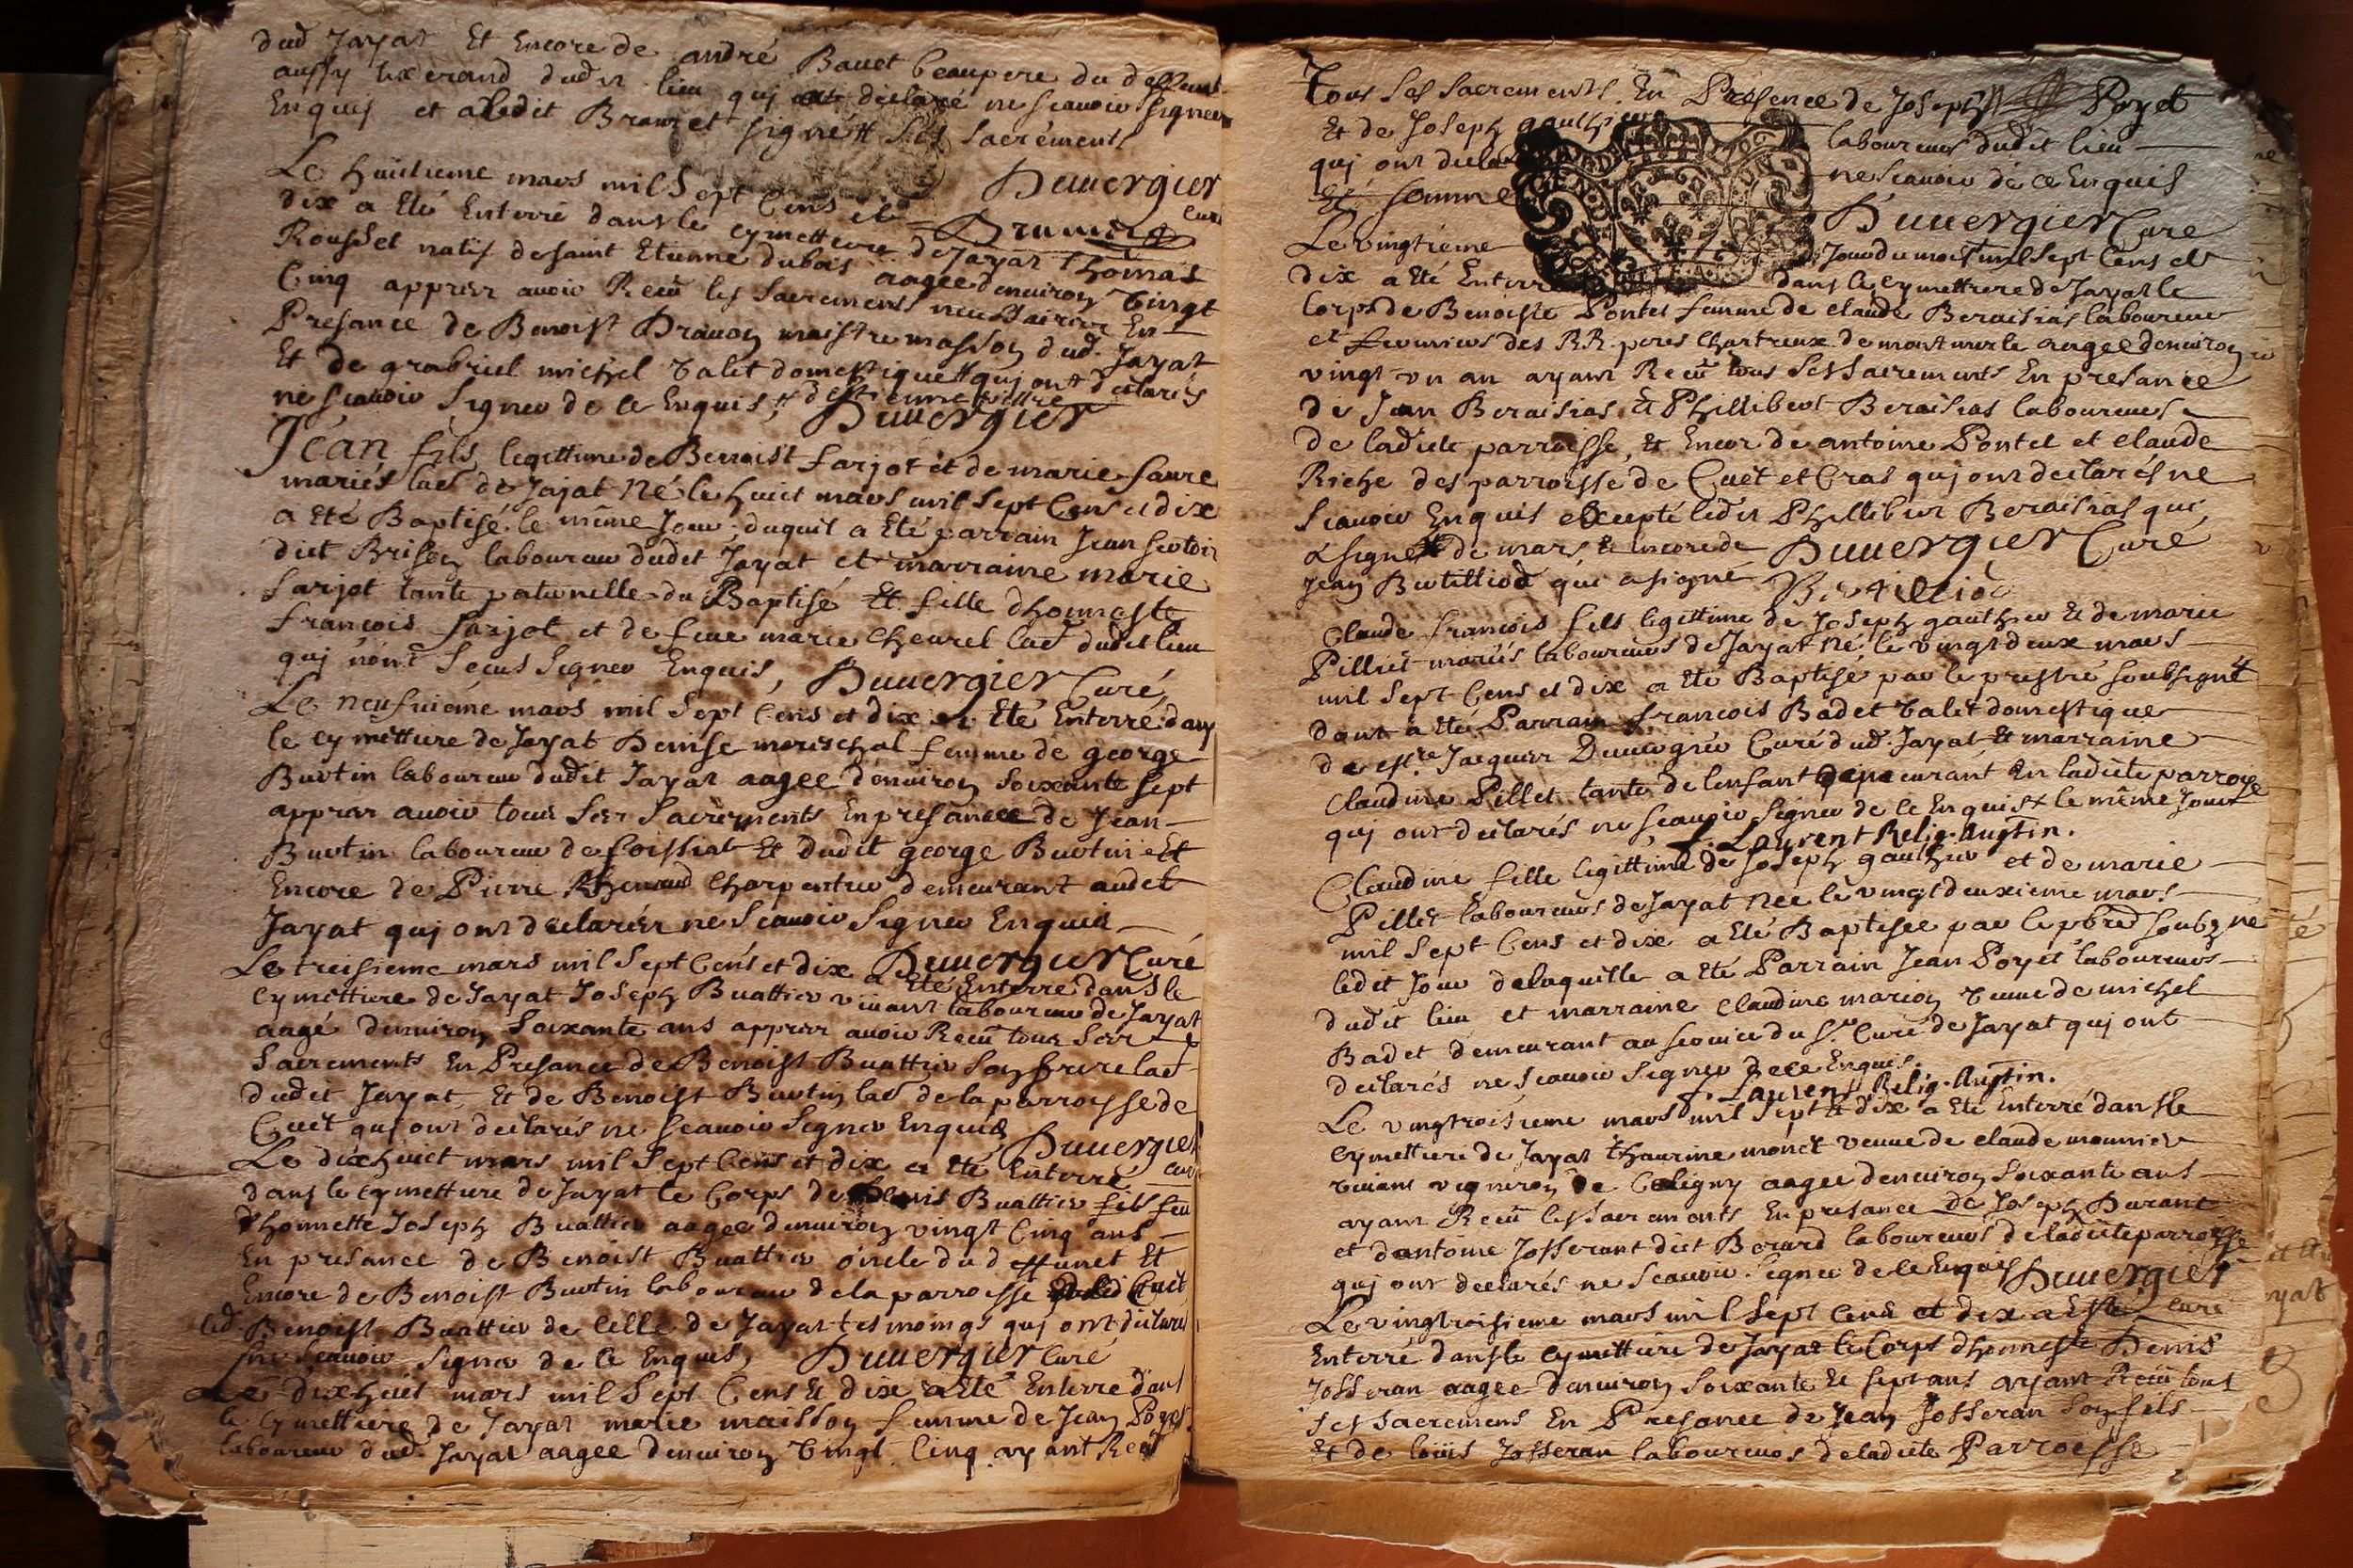 dud Jayat Et Encore de andré Bauet beaupere du deffunt
aussy tixerand dudit lieu qui ont déclaré ne scauoir signer
Enquis et a ledit Brauet signé ses sacréments
Duuergier
curé
Le huitieme mars mil Sept Cens et
dix a Eté Enterré dans le cymettiere de Jayat Thomas
Rousset natif de saint Etienne dubois aagée denuiron vingt
Cinq appres auoir Receü les sacrements necessaires En
Présance de Benoist Drauon maistre masson dud. Jayat
Et de grabriel michel valet domestique qui ont déclarés
ne scauoir signer de ce Enquis
Duuergier
Jean fils legittime de Benoist farjot et de marie faure
mariés lab de Jajat Né le huict mars mil sept Cens et dix
a Eté Baptisé le même Jour, duquil a Eté parrain Jean
dict Brison laboureur dudet Jayat et marraine marie
farjot tante paternelle du Baptisé Et fille dhonneste
francois farjot et de feue marie cheurel lab dudit lieu
qui nónt sceus signer Enquis, Duuergier Curé
Le neufuieme mars mil Sept Cens et dix a Eté Enterré dans
le cymettiere de Jayat Denise mareschal femme de george
Buotin laboureur dudit Jayat aagée denuiron soixante sept
appres auoir tous ses sacréments En présance de Jean
Buotin laboureur de foissiat Et dudit george Buotin Et
Encore de Pierre Thenaud charpentier demeurant audit
Jayat qui ont declarés ne Scauoir Signer Enquis
Duuergier Curé
Le treisieme mars mil Sept Cens et dix a Eté Enterré dans le
cymettiere de Jayat Joseph Buattier viuant laboureur de Jayat
aagé denuiron soixante ans appres auoir Receü tous ses
Sacrements En Présance de Benoist Buattier son frere lab
dudit Jayat, Et de Benoist Buotin lab de la parroysse de
Cuët qui ont déclarés ne scauoir Signer Enquis Duuergier
curé
Le dixhuict mars mil Sept Cens et dix a Eté Enterré
dans le cymettiere de Jayat le Corps de Buattier fils feu
dhonnette Joseph Buattier aagée denuiron vingt Cinq ans
En présance de Benoist Buattier oncle du deffunct Et
Encore de Benoist Buotin laboureur dela parroisse Cuët
led. Benoist Buattier de Celle de Jayat tesmoings qui ont déclaré
ne scauoir signer de ce Enquis, Duuergier Curé
Le dixhuit mars mil Sept Cens Et dix a Eté Enterré dans
le cymettiere de Jayat marie maisson femme de Jean Poyet
laboureur dud. Jayat aagee denuiron vingt Cinq ayant Receü
Tous Ses Sacrements. En Présence de Joseph Poyet
Et de Joseph gauthier laboureurs dudit lieu
qui ont decla ne scauoir de ce Enquis
Et somme
Duuergier Curé
Le vingtieme Jour du mois mil Sept Cens et
dix a Eté Enterré dans le cymettiere de Jayat le
Corps de Benoiste Pontet femme de claude Beraisias laboureur
et des RR. peres Chartreux de montmerle aagée denuiron
vingt un an ayant Receü tous ses sacrements En présance
de Jean Beraisias Et Phillibert Beraisias laboureurs
de ladicte parroisse, Et Encor de antoine Pontet et claude
Riche des parroisse de Cuët et Cras qui ont déclarés ne
scauoir Enquis excepté ledit Phillibert Beraisias qui
a signé de mars Et encore de Duuergier Curé
Jean Buotilliod qui a signé
Claude francois fils legittime de Joseph gauthier Et de marie
Pillet mariés laboureurs de Jayat Né le vingt deux mars
mil Sept Cens et dix a Eté Baptisé par le prestre soubsigné
dont a Eté Parrain francois Badet valet domestique
de Jacques Duuergier Curé dud. Jayat Et marraine
Claudine Pillet tante de lenfant demeurant En ladicte parroysse
qui ont declarés ne scauoir signer de ce Enquis le même Jour
f. Laurent Relig. Austin.
Claudine fille legittime de Joseph gauthier et de marie
Pillet laboureurs de Jayat Née le vingt deuxieme mars
mil Sept Cens et dix a Eté Baptisée par le pbre
ledit Jour delaquille a Eté Parrain Jean Poyet laboureurs
dudit lieu et marraine Claudine marion veuue de michel
Badet demeurant au seruice du Sr. Curé de Jayat qui ont
declarés ne scauoir signer de ce Enquis.
f. Laurent Relig. Austin.
Le vingtroisieme mars mil Sept Et dix a Eté Enterré dans le
cymettiere de Jayat Thaurine monet veuue de claude mounier
viuant vigneron de Coligny aagée denuiron soixante ans
ayant Receü les sacrements En présance de Joseph Durant
et dantoine Josserant dict Berard laboureurs de ladicte parroisse
qui ont declarés ne scauoir signer de ce Enquis Duuergier
Curé
Le vingtroisieme mars mil Sept Cens et dix a Esté
Enterré dans le cymettiere de Jayat le Corps dhonneste Denis
Josseran aagée denuiron soixante Et sept ans ayant Receü tous
ses sacremens En Présance de Jean Josseran son fils
Et de loüis Josseran laboureurs de ladicte Parroisse